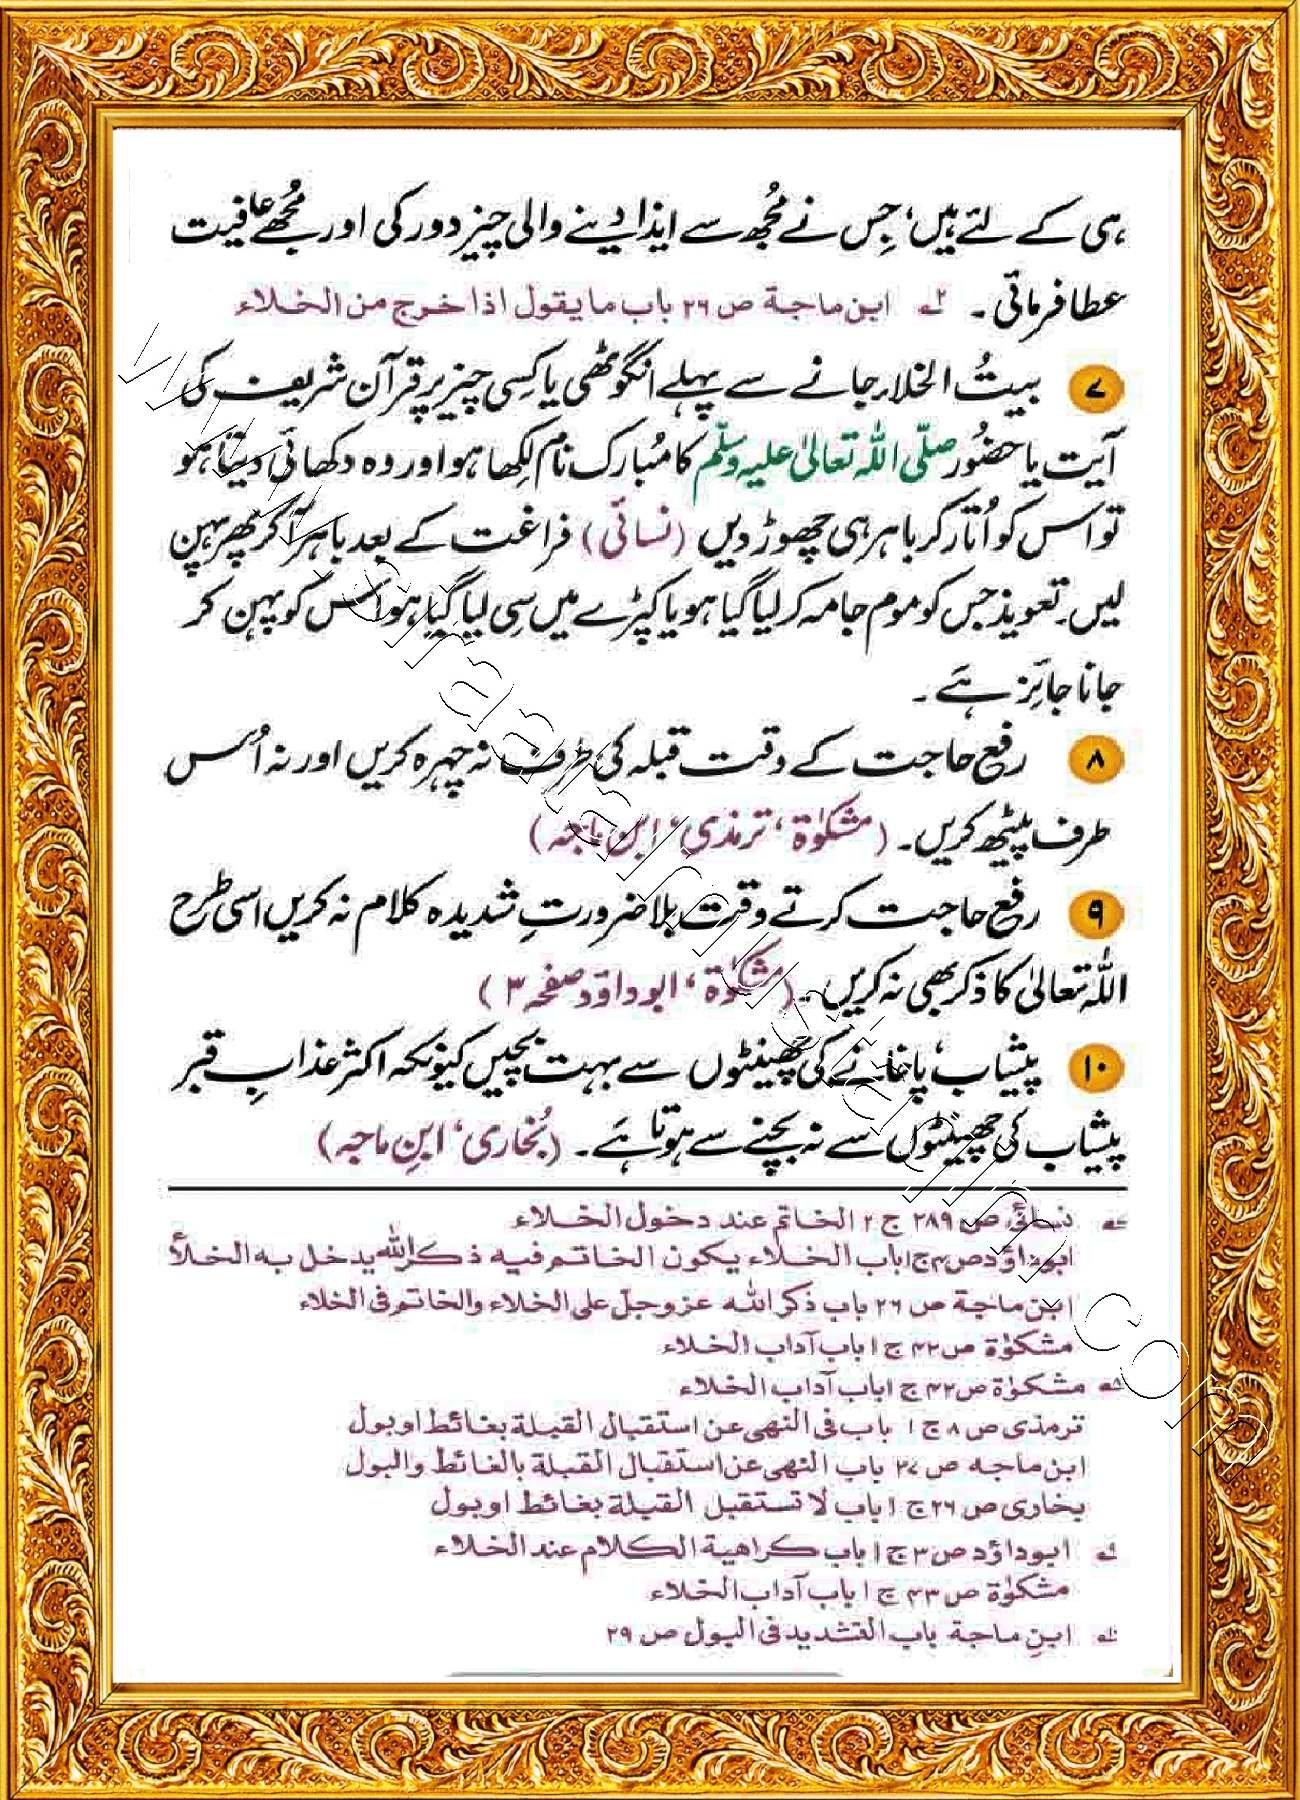 ہی کے لئے ہیں، جس نے مُجھ سے ایذا دینے والی چیز دور کی اور مُجھے عافیت
عطا فرمائی۔ ۲ے ابن ماجة ص ۲۶ باب ما یقول اذا خرج من الخلاء
۷ بیتُ الخلاء جانے سے پہلے انگوٹھی یا کِسی چیز پر قرآن شریف کی
آیت یا حضُور صلّی اللہ تعالیٰ علیہ وسلّم کا مُبارک نام لکھا ہو اور وہ دکھائی دیتا ہو
تو اس کو اُتار کر باہر ہی چھوڑ دیں (نسائی) فراغت کے بعد باہر آ کر پھر پہن
لیں۔ تعویذ جس کو موم جامہ کر لیا گیا ہو یا کپڑے میں سِی لیا گیا ہو اس کو پہن کر
جانا جائز ہے۔
۸ رفع حاجت کے وقت قبلہ کی طرف نہ چہرہ کریں اور نہ اُس
طرف پیٹھ کریں۔ (مشکوٰۃ، ترمذی، ابن ماجہ)
۹ رفع حاجت کرتے وقت بلا ضرورتِ شدیدہ کلام نہ کریں اسی طرح
اللہ تعالیٰ کا ذکر بھی نہ کریں۔ (مشکوٰۃ، ابوداؤد صفحہ ۳)
۱۰ پیشاب، پاخانے کی چھینٹوں سے بہت بچیں کیونکہ اکثر عذابِ قبر
پیشاب کی چھینٹوں سے نہ بچنے سے ہوتا ہے۔ (بُخاری، ابنِ ماجہ)
۷ے نسائی ص ۲۸۹ ج ۲ الخاتم عند دخول الخلاء
ابوداؤد ص ۴ ج ۱ باب الخلاء یکون الخاتم فیه ذکر الله یدخل به الخلاء
ابن ماجة ص ۲۶ باب ذکر الله عزوجل علی الخلاء والخاتم فی الخلاء
مشکوٰة ص ۴۲ ج ۱ باب آداب الخلاء
۸ے مشکوٰة ص ۴۲ ج ۱ باب آداب الخلاء
ترمذی ص ۸ ج ۱ باب فی النهی عن استقبال القبلة بغائط او بول
ابن ماجه ص ۲۷ باب النهی عن استقبال القبلة بالغائط والبول
بخاری ص ۲۶ ج ۱ باب لا تستقبل القبلة بغائط او بول
۹ے ابوداؤد ص ۳ ج ۱ باب کراهیة الکلام عند الخلاء
مشکوٰة ص ۴۳ ج ۱ باب آداب الخلاء
۱۰ے ابنِ ماجة باب التشدید فی البول ص ۲۹